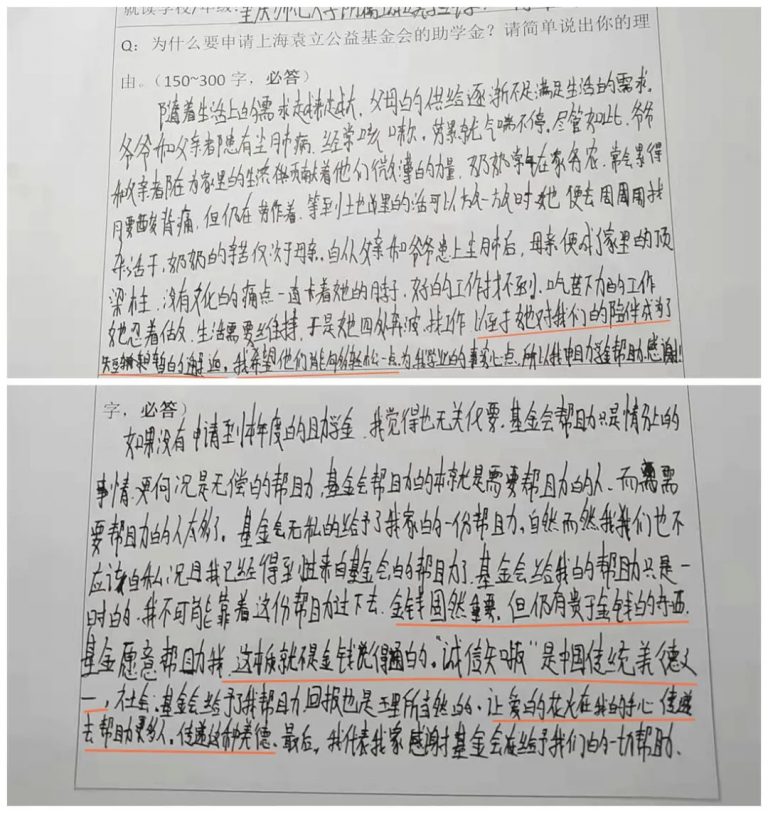 就读学校/年级:重庆师范大学附属
Q:为什么要申请上海袁立公益基金会的助学金?请简单说出你的理
由。(150~300字,必答)
随着生活上的需求越来越大,父母的供给逐渐不足满足生活的需求。
爷爷和父亲都患有尘肺病,经常咳嗽,劳累就气喘不停。尽管如此,爷爷
和父亲都在为家里的生活贡献着他们微薄的力量,奶奶常年在家务农,常会累得
月要酸背痛,但仍在劳作着,等到土地里的活可以放一放时她便去周围找
杂活干,奶奶的辛苦仅次于母亲,自从父亲和爷爷患上尘肺后,母亲便成了家里的顶
梁柱,没有文化的痛点一直卡着她的脖子,好的工作找不到,吃苦下力的工作
她忍着估做,生活需要维持,于是她四处奔波,找工作,以至于她对我们的陪伴成为了
我希望他们能够轻松一点,为我学业的事省心点,所以我申助学金帮助,感谢!
字,必答)
如果没有申请到本年度的助学金,我觉得也无关化要,基金会帮助只是情分上的
事情,更何况是无偿的帮助,基金会帮助的本就是需要帮助的人,而需
要帮助的人太多了,基金会无私的给予了我家的一份帮助,自然而然我我们也不
应该自私,况且我已经得到过来自基金会的帮助了,基金会给我的帮助只是一
时的,我不可能靠着这份帮助过下去,金钱固然重要,但仍有贵于金钱的东西,
基金愿意帮助我,这本质就不是金钱说得通的,"诚信 "是中国传统美德之
一,在社会,基金会给予我帮助,回报也是理所当然的,让爱的花火在我的手心传递
去帮助更多人,传递这种美德,最后,我代表我家感谢基金会在给予我们的一切帮助.